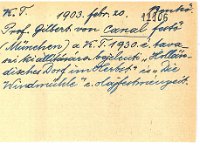 K. T. 1903. febr. 20.
12106
Prof. Gilbert von Canal festő
(München) a K. T. 1930. é. tava-
szi kiállítására bejelent „Hollän-
disches Dorf im Herbst" és „Die
Windmühle" c. olajfestményeit.